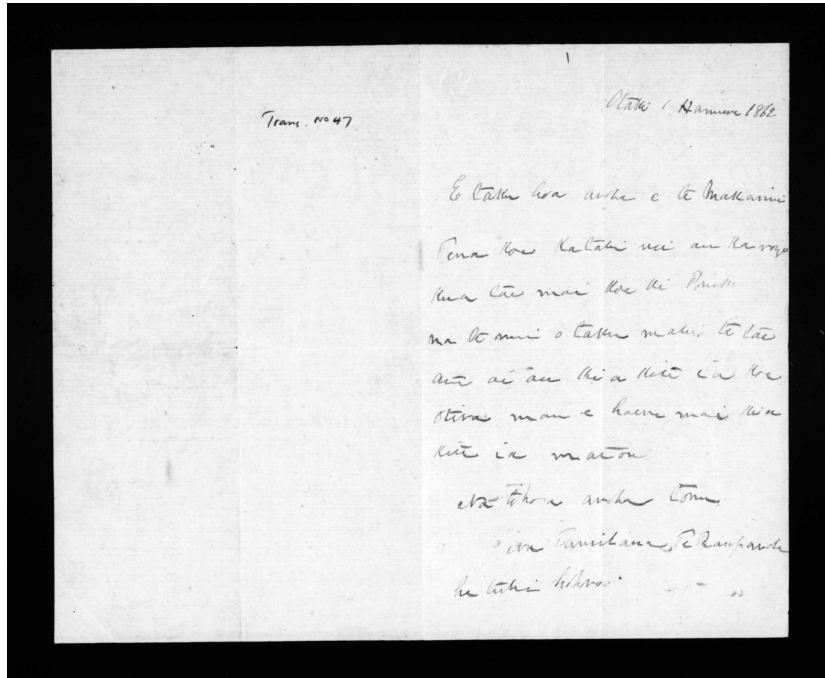 Trans. No 47
Otaki 1 Hanuere 1862
E taku hoa aroha e te Makarini
Tena koe Katahi nei au ka rogo
kua tae mai koe ki
na te nui o taku mahi te tae
atu ai au kia kite i a koe
Otira mau e haere mai kia
kite ia matou
Na to hoa aroha tonu
Na Tamihana Te Rauparaha
he tuhi hohoro